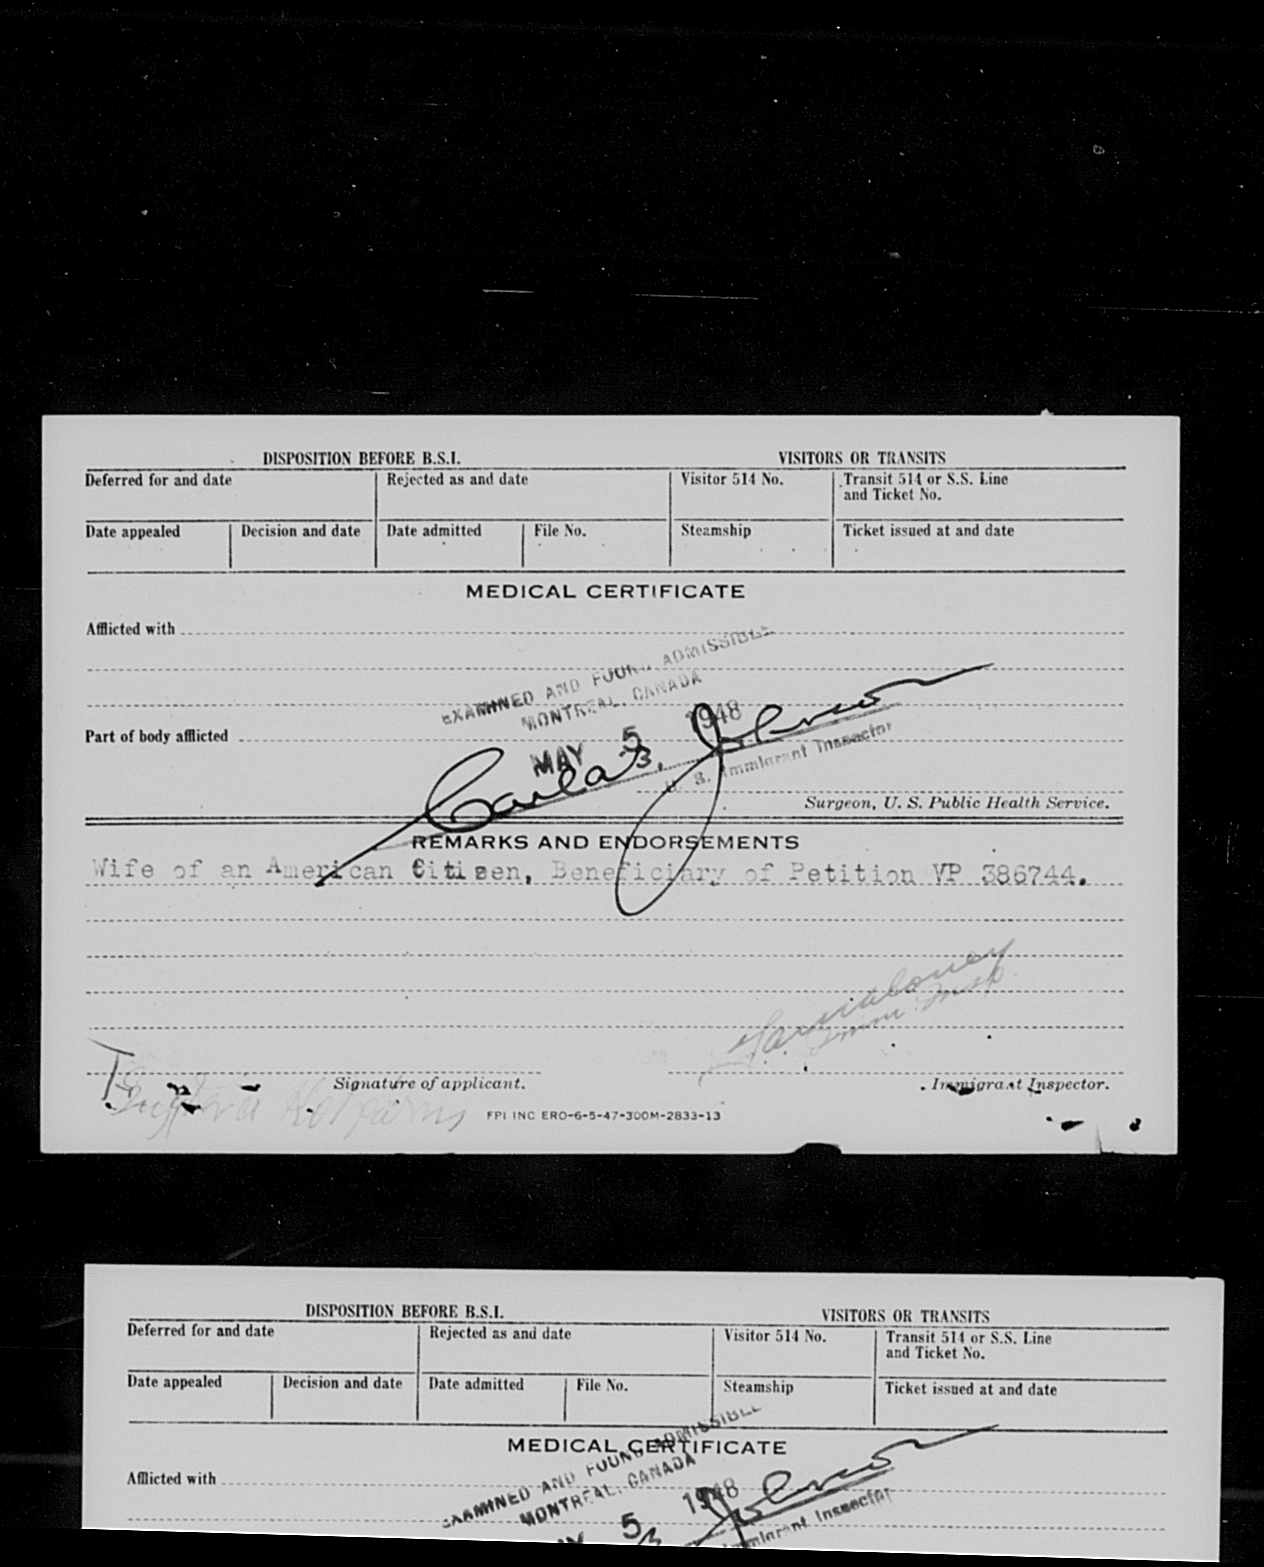 DISPOSITION BEFORE B.S.I. VISITORS OR TRANSITS
Deferred for and date Rejected as and date Visitor 514 No. Transit 514 or S.S. Line
and Ticket No.
Date appealed Decision and date Date admitted File No. Steamship Ticket issued at and date
MEDICAL CERTIFICATE
Afflicted with
EXAMINED AND FOUND ADMISSIBLE
MONTREAL, CANADA
MAY 5 1948
Part of body afflicted
U. S. Immigrant Inspector
Surgeon, U. S. Public Health Service.
REMARKS AND ENDORSEMENTS
Wife of an American Citizen, Beneficiary of Petition VP 386744.
Signature of applicant. Immigrant Inspector.
FPI INC ERO-6-5-47-300M-2833-13
DISPOSITION BEFORE B.S.I. VISITORS OR TRANSITS
Deferred for and date Rejected as and date Visitor 514 No. Transit 514 or S.S. Line
and Ticket No.
Date appealed Decision and date Date admitted File No. Steamship Ticket issued at and date
MEDICAL CERTIFICATE
Afflicted with
EXAMINED AND FOUND ADMISSIBLE
MONTREAL, CANADA
5 1948
Immigrant Inspector